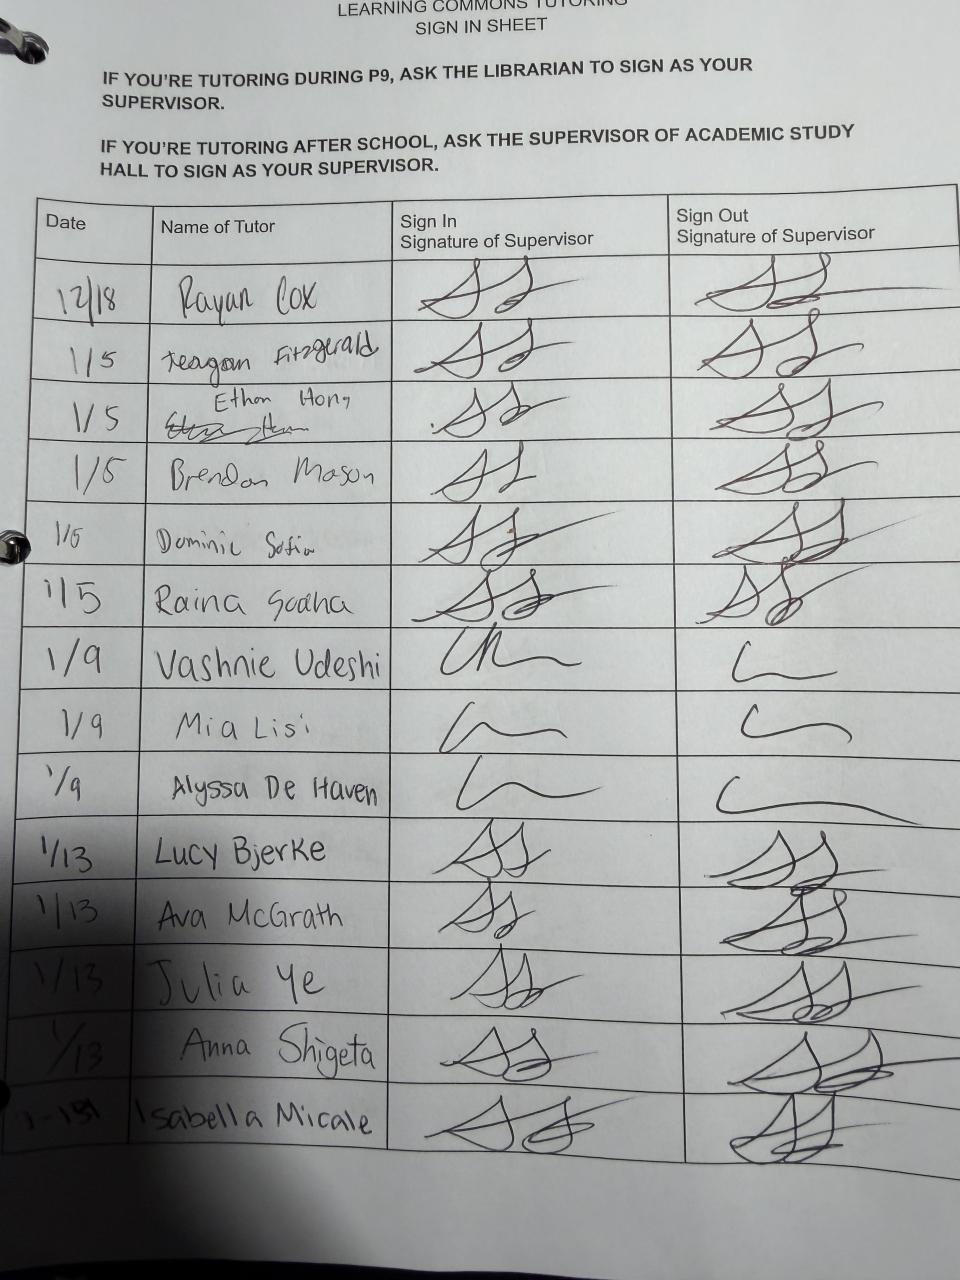 LEARNING COMMONS TUTORING
SIGN IN SHEET
IF YOU'RE TUTORING DURING P9, ASK THE LIBRARIAN TO SIGN AS YOUR
SUPERVISOR.
IF YOU'RE TUTORING AFTER SCHOOL, ASK THE SUPERVISOR OF ACADEMIC STUDY
HALL TO SIGN AS YOUR SUPERVISOR.
Date Name of Tutor Sign In Signature of Supervisor Sign Out Signature of Supervisor
12/18 Rayan Cox
1/5 Teagan Fitzgerald
1/5 Ethan Hong
1/5 Brendan Mason
1/5 Dominic Sofia
1/5 Raina
1/9 Vashnie Udeshi
1/9 Mia Lisi
1/9 Alyssa De Haven
1/13 Lucy Bjerke
1/13 Ava McGrath
1/13 Julia Ye
1/13 Anna Shigeta
Isabella Micale